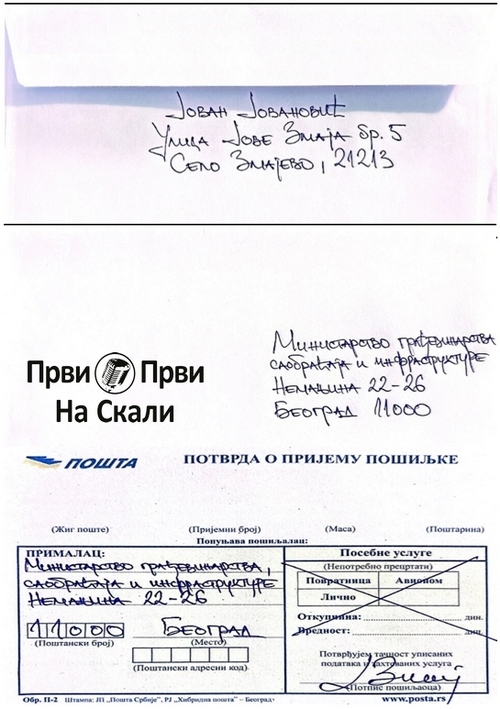 Јован Јовановић
Улица Јове Змаја бр. 5
Село Змајево, 21213
Министарство грађевинарства
саобраћаја и инфраструктуре
Немањина 22-26
Београд 11000
Први Први
На Скали
ПОШТА
ПОТВРДА О ПРИЈЕМУ ПОШИЉКЕ
(Жиг поште) (Пријемни број) (Маса) (Поштарина)
Попуњава пошиљалац:
ПРИМАЛАЦ:
Министарство грађевинарства,
саобраћаја и инфраструктуре
Немањина 22-26
11000 Београд
(Поштански број) (Место)
(Поштански адресни код)
Посебне услуге
(Непотребно прецртати)
Повратница Авионом
Лично
Откупнина: дин.
Вредност: дин.
Потврђујем тачност уписаних
података и захтеваних услуга
(Потпис пошиљаоца)
Обр. П-2 Штампа: ЈП „Пошта Србије”, РЈ „Хибридна пошта” – Београд
www.posta.rs